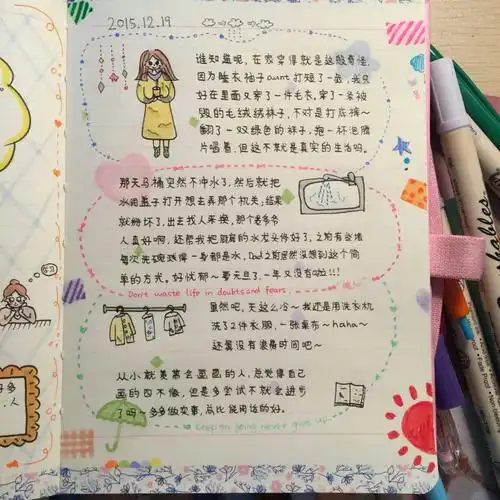 2015.12.19
谁知道呢,在家穿得就是这般奇怪.
因为睡衣袖子aunt打短了一截,我只
好在里面又穿了一件毛衣,穿了一条被
毁的毛绒绒袜子,不对是打底裤~
翻了一双绿色的袜子,抱一杯泡腾
片喝着,但这不就是真实的生活吗.
那天马桶突然不冲水了,然后就把
水闸盖子打开想去弄那个机关,结果
就掰坏了,出去找人来换,那个老爷爷
人真好啊,还帮我把厨房的水龙头件好了,之前
每次洗碗溅得一身都是水,Dad之前居然没想到这个简
单的方式.好忧郁~要元旦了,一年又没有啦!!!
Don't waste life in doubts and fears.
虽然吧,天这么冷~我还是用洗衣机
洗了2件衣服,一张桌布~haha~
还算没有浪费时间吧~
从小就羡慕会画画的人,总觉得自己
画的四不像,但是多尝试不就会进步
了吗~多多做实事,总比说闲话的好.
Keep on going never give up